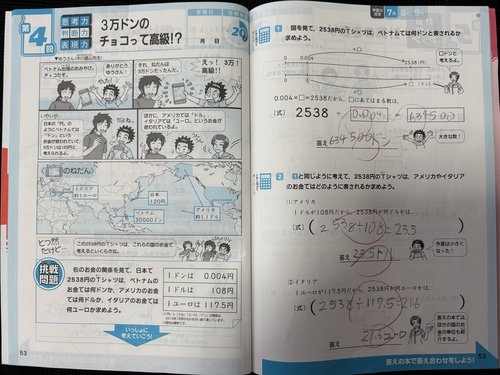 第4回
思考力
判断力
表現力
3万ドンの
チョコって高級!?
月 日
20
ベトナム出張のおみやげ、
チョコだぞ。
ありがとう、
ゆうさん!
それ、ねだんは
3万ドンだったんだ。
えっ! 3万!
高級!!
いやいや、
日本の「円」の
ようにベトナムでは
「ドン」という
お金が使われていて、
ほかに、アメリカでは「ドル」、
イタリアでは「ユーロ」というお金が
使われているよ。
のねだん
イタリア
約1ユーロ
日本
120円
ベトナム
30000ドン
アメリカ
約1.1ドル
とつぜん
だけど…
この2538円のTシャツは、これらの国のお金で
考えるといくらかな。
挑戦
問題
右のお金の関係を見て、日本で
2538円のTシャツは、ベトナムの
お金では何ドンか、アメリカのお金
では何ドルか、イタリアのお金では
何ユーロか求めよう。
1ドンは 0.004円
1ドルは 108円
1ユーロは 117.5円
いっしょに
考えていこう!
53
1 図を見て、2538円のTシャツは、ベトナムでは何ドンと表されるか
求めよう。
÷□
0 0.004 2538(円)
0 1
÷□
□ドンと
考えるよ。
0.004×□=2538だから、□にあてはまる数は、
(式) 2538 ÷ 0.004 = 634500
答え 634500ドン
大きな数!
2 1と同じように考えて、2538円のTシャツは、アメリカやイタリア
のお金ではどのように表されるか求めよう。
(1)アメリカ
1ドルが108円だから、2538円が何ドルかは、
(式) (2538÷108=23.5)
答え 23.5ドル
今度は小さく
なった!
(2)イタリア
1ユーロが117.5円だから、2538円が何ユーロかは、
(式) (2538÷117.5=21.6)
答え 21.6ユーロ
答えの本では、
ほかの国のお
金の単位を紹
介するよ。
答えの本で答え合わせをしよう!
52